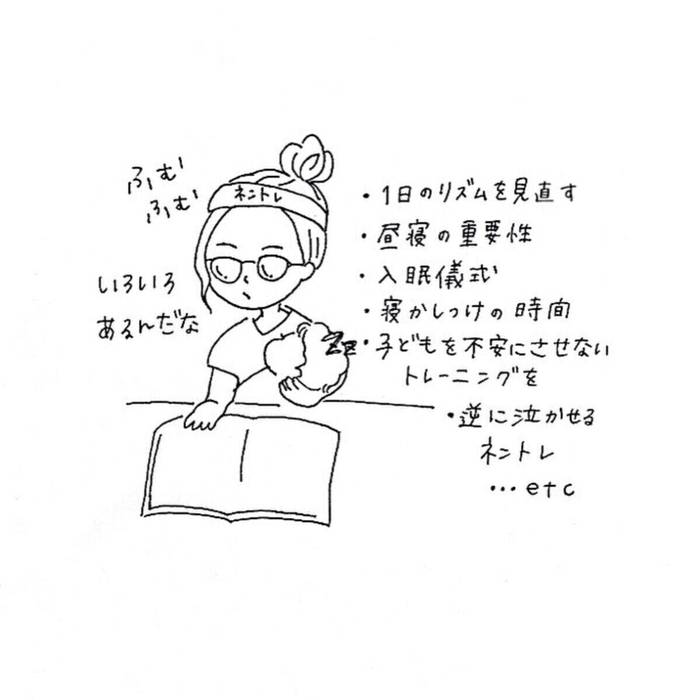 ふむ
ふむ
ネントレ
いろいろ
あるんだな
・1日のリズムを見直す
・昼寝の重要性
・入眠儀式
・寝かしつけの時間
zz
・子どもを不安にさせない
トレーニングを
・逆に泣かせる
ネントレ
…etc